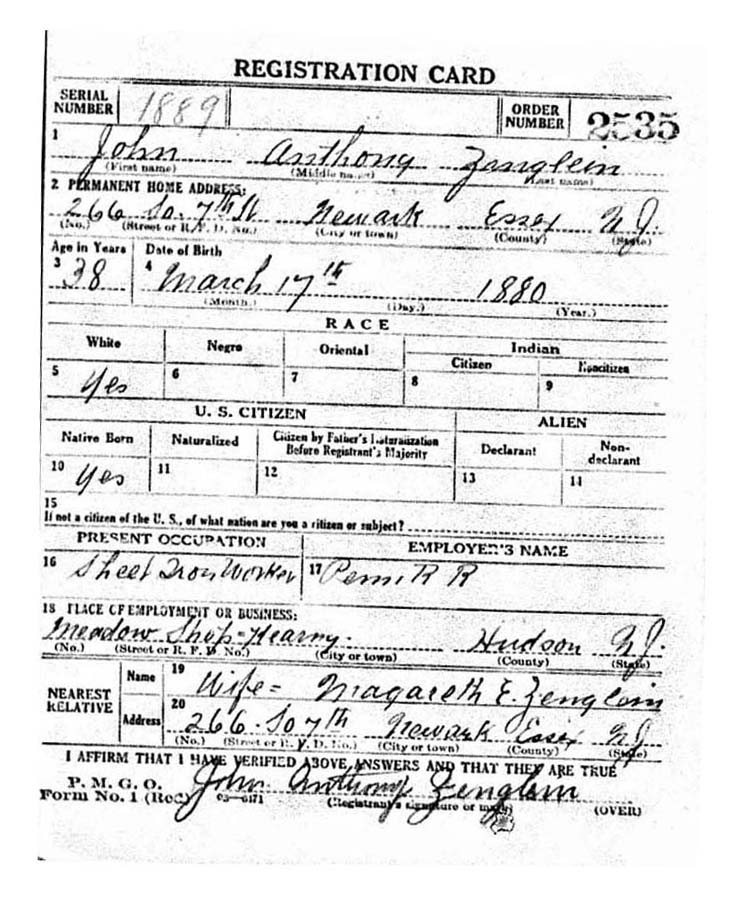 REGISTRATION CARD
SERIAL NUMBER 1889 ORDER NUMBER 2535
1 John Anthony Zenglein
(First name) (Middle name) (Last name)
2 PERMANENT HOME ADDRESS:
266 So. 7th St Newark Essex N.J.
(No.) (Street or R. F. D. No.) (City or town) (County) (State)
Age in Years Date of Birth
3 38 4 March 17th 1880
(Month.) (Day.) (Year.)
RACE
White Negro Oriental Indian
Citizen Noncitizen
5 Yes 6 7 8 9
U. S. CITIZEN ALIEN
Native Born Naturalized Citizen by Father's Naturalization Before Registrant's Majority Declarant Non-declarant
10 Yes 11 12 13 14
15
If not a citizen of the U. S., of what nation are you a citizen or subject?
PRESENT OCCUPATION EMPLOYER'S NAME
16 Sheet Iron Worker 17 Penn R R
18 PLACE OF EMPLOYMENT OR BUSINESS:
Meadow Shop-Kearny. Hudson N.J.
(No.) (Street or R. F. D. No.) (City or town) (County) (State)
NEAREST RELATIVE Name 19 Wife = Magareth E. Zenglein
Address 20 266 So 7th Newark Essex N.J
(No.) (Street or R. F. D. No.) (City or town) (County) (State)
I AFFIRM THAT I HAVE VERIFIED ABOVE ANSWERS AND THAT THEY ARE TRUE
P. M. G. O.
Form No. 1 (Red) 03-6171 John Anthony Zenglein
(Registrant's signature or mark) (OVER)